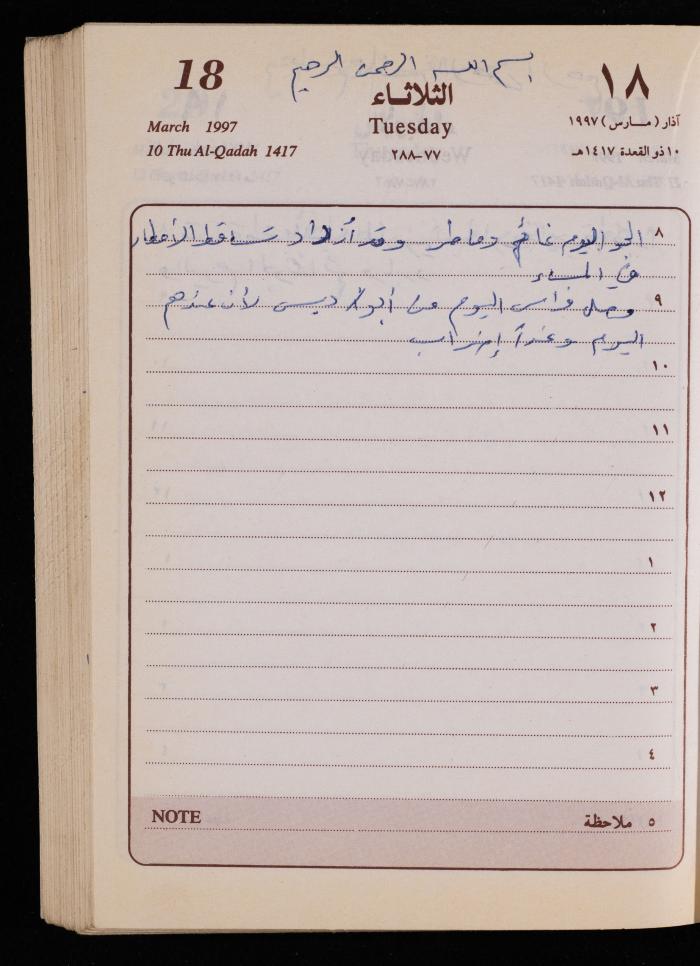 بسم الله الرحمن الرحيم
18 ١٨
الثلاثاء
March 1997 Tuesday آذار (مارس) ١٩٩٧
10 Thu Al-Qadah 1417 ٧٧-٢٨٨ ١٠ ذو القعدة ١٤١٧هـ
٨ الجو اليوم غائم وماطر وقد أزداد تساقط الأمطار
في المساء
٩ وصل فراس اليوم من أبو ديس لأن عندهم
اليوم وغداً إضراب
١٠
١١
١٢
١
٢
٣
٤
NOTE ٥ ملاحظة